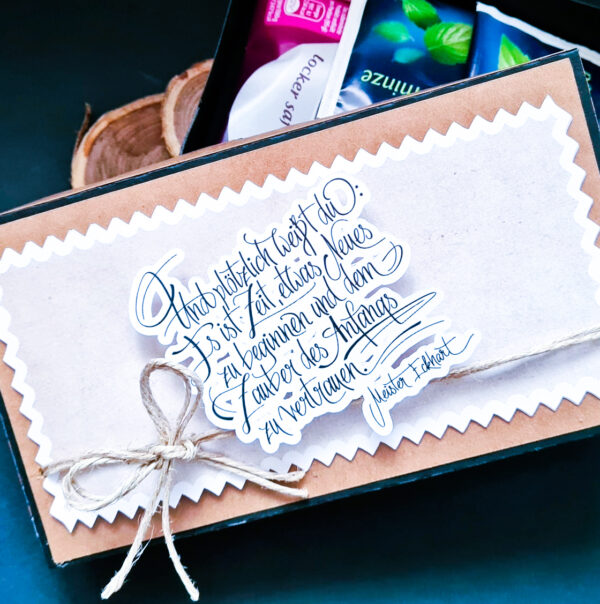 locker sa
minze
Und plötzlich weißt du:
Es ist Zeit etwas Neues
zu beginnen und dem
Zauber des Anfangs
zu vertrauen.
Meister Eckhart